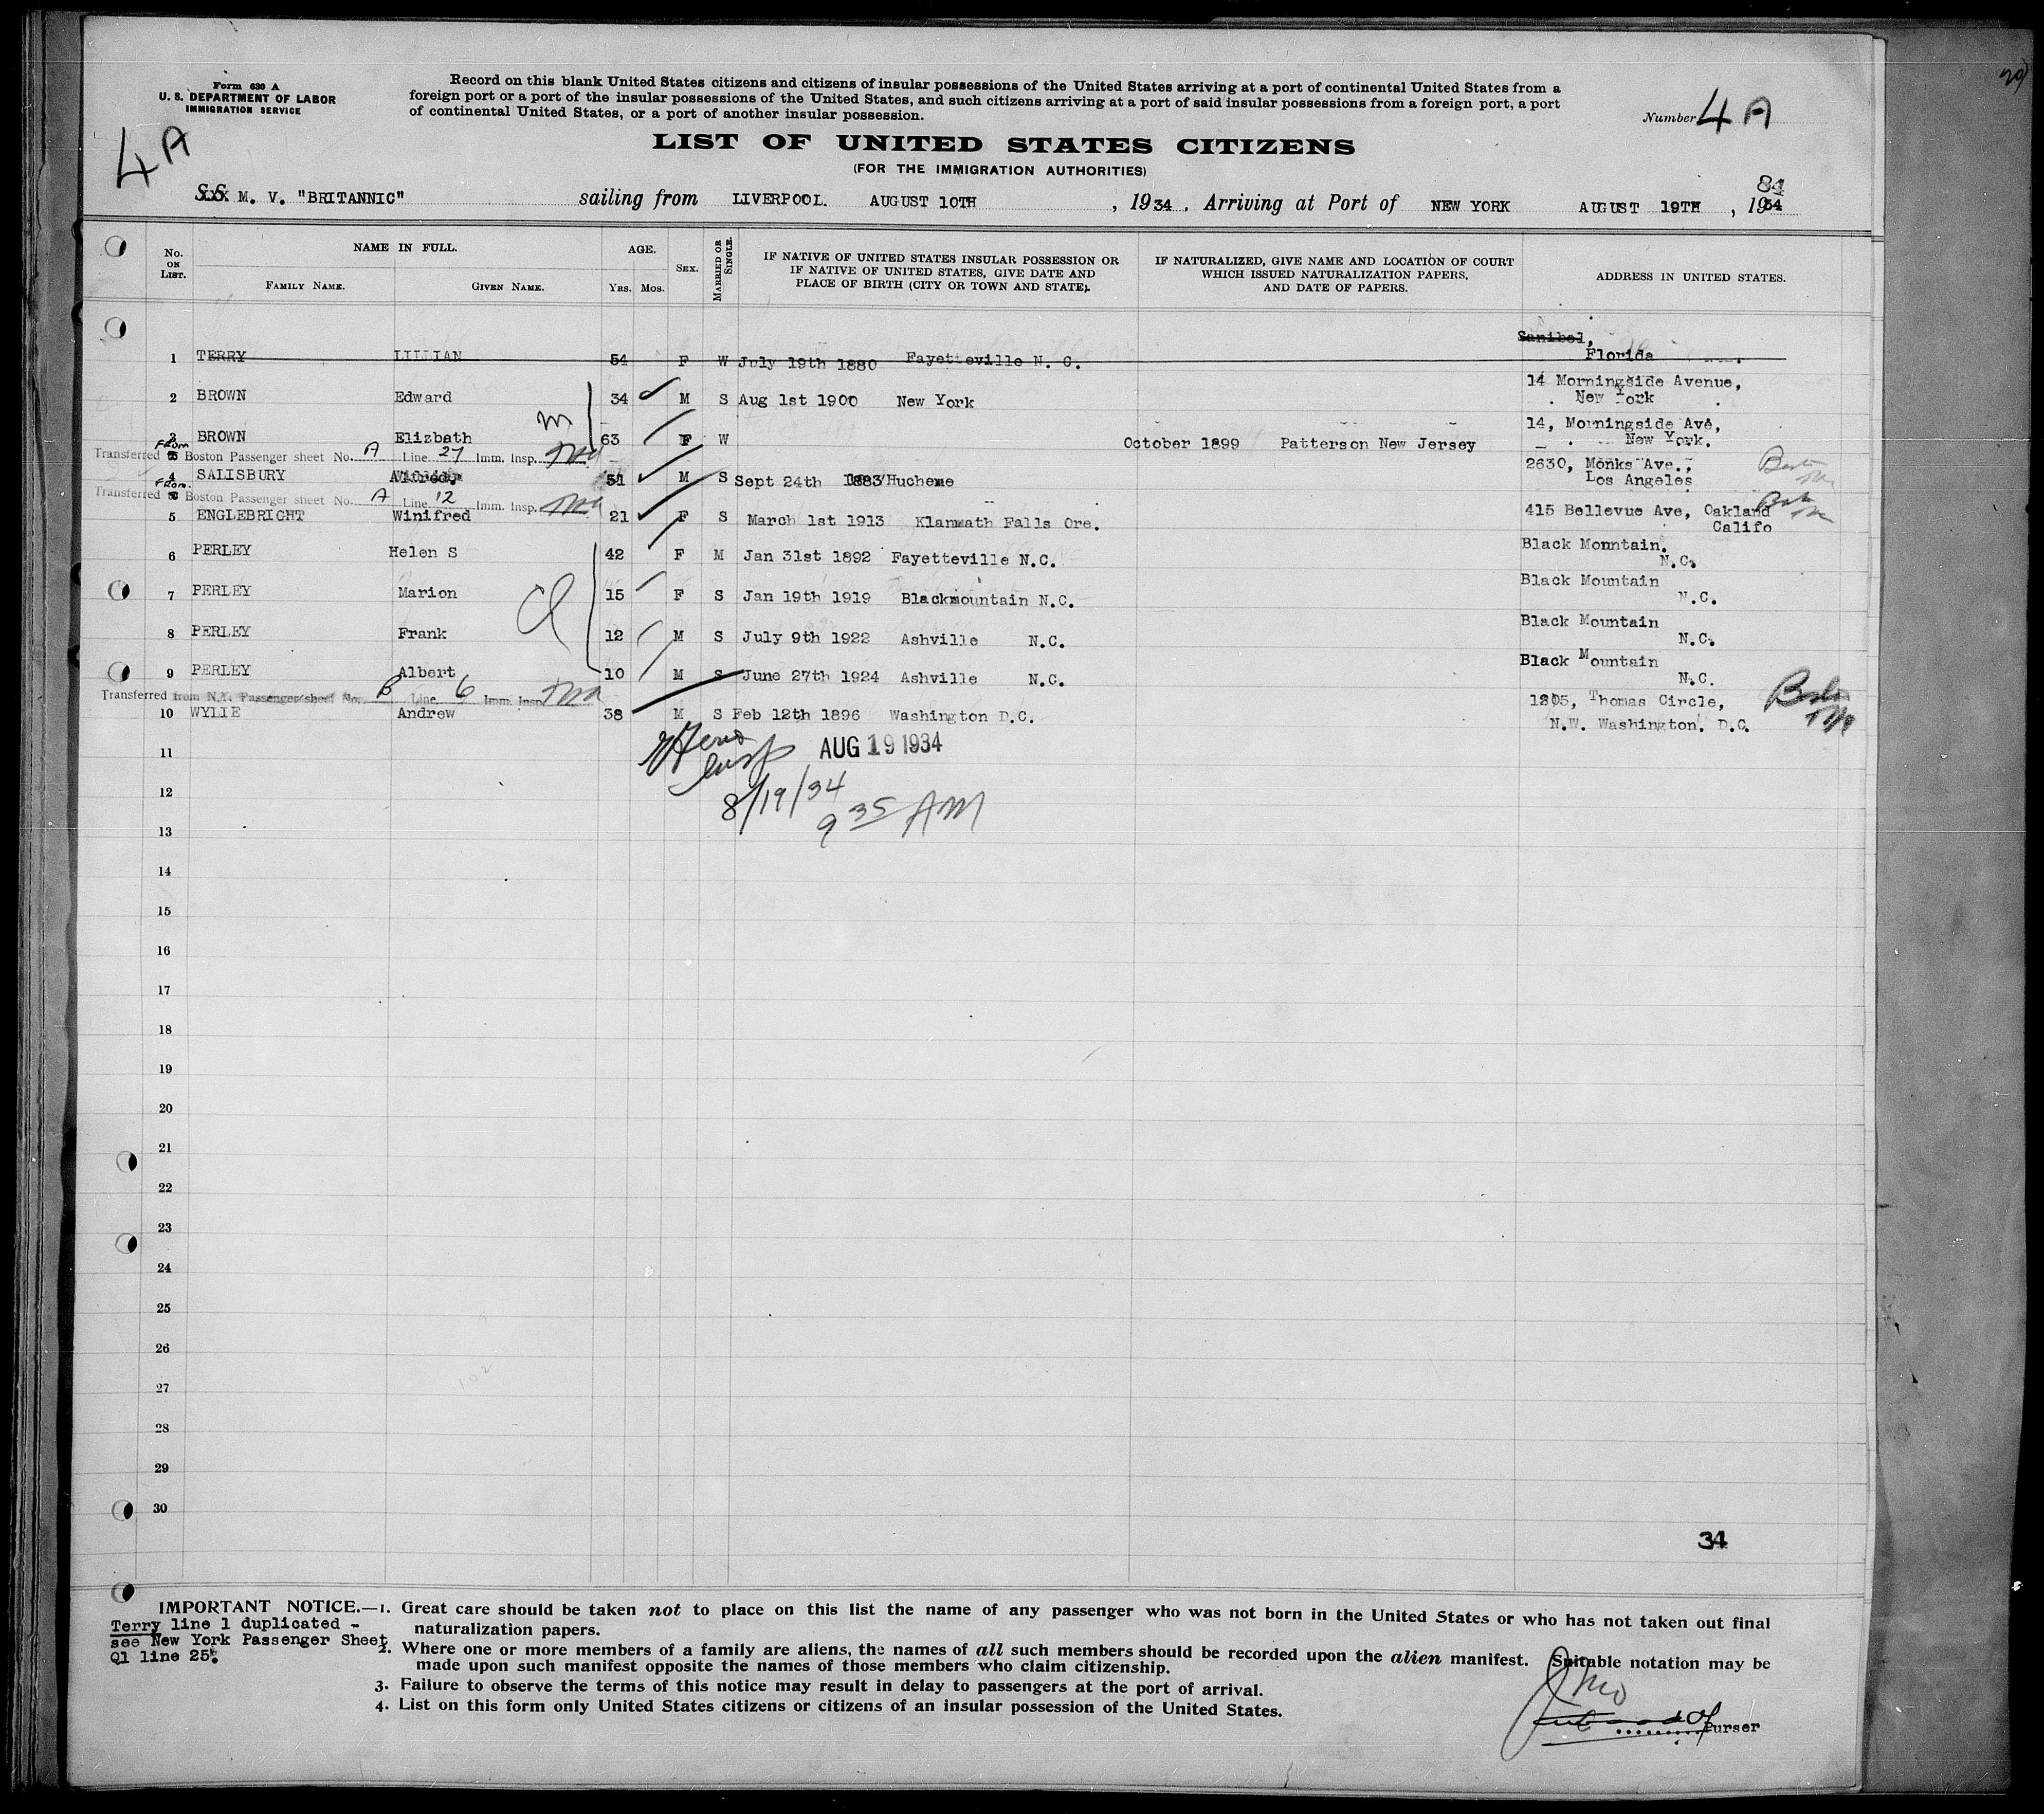 Form 630 A
U. S. DEPARTMENT OF LABOR
IMMIGRATION SERVICE
Record on this blank United States citizens and citizens of insular possessions of the United States arriving at a port of continental United States from a
foreign port or a port of the insular possessions of the United States, and such citizens arriving at a port of said insular possessions from a foreign port, a port
of continental United States, or a port of another insular possession.
Number 4 A
4 A
LIST OF UNITED STATES CITIZENS
(FOR THE IMMIGRATION AUTHORITIES)
84
S.S. M. V. "BRITANNIC" sailing from LIVERPOOL. AUGUST 10TH , 1934 , Arriving at Port of NEW YORK AUGUST 19TH , 1934
No. ON LIST.
NAME IN FULL.
FAMILY NAME.
GIVEN NAME.
AGE.
YRS. MOS.
SEX.
MARRIED OR SINGLE.
IF NATIVE OF UNITED STATES INSULAR POSSESSION OR
IF NATIVE OF UNITED STATES, GIVE DATE AND
PLACE OF BIRTH (CITY OR TOWN AND STATE).
IF NATURALIZED, GIVE NAME AND LOCATION OF COURT
WHICH ISSUED NATURALIZATION PAPERS,
AND DATE OF PAPERS.
ADDRESS IN UNITED STATES.
Sanibel,
1 TERRY LILLIAN 54 F W July 19th 1880 Fayetteville N. C. Florida
2 BROWN Edward 34 M S Aug 1st 1900 New York 14 Morningside Avenue,
New York
m
3 BROWN Elizbath 63 F W October 1899 Patterson New Jersey 14, Morningside Ave,
New York.
Transferred From Boston Passenger sheet No. A Line 27 Imm. Insp.
4 SALISBURY 51 M S Sept 24th 1883 Hucheme 2630, Monks Ave.,
Los Angeles
Boston
Transferred From Boston Passenger sheet No. A Line 12 Imm. Insp.
5 ENGLEBRIGHT Winifred 21 F S March 1st 1913 Klammath Falls Ore. 415 Bellevue Ave, Oakland
Califo
6 PERLEY Helen S 42 F M Jan 31st 1892 Fayetteville N.C. Black Monntain.
N.C.
7 PERLEY Marion 15 F S Jan 19th 1919 Blackmountain N.C. Black Mountain
N.C.
8 PERLEY Frank 12 M S July 9th 1922 Ashville N.C. Black Mountain
N.C.
9 PERLEY Albert 10 M S June 27th 1924 Ashville N.C. Black Mountain
N.C.
Transferred from N.Y. Passenger sheet No. B Line 6 Imm. Insp.
10 WYLIE Andrew 38 M S Feb 12th 1896 Washington D.C. Thomas Circle,
N.W. Washington. D.C.
Boston
11
AUG 19 1934
12
8/19/34
13
9 35 AM
14
15
16
17
18
19
20
21
22
23
24
25
26
27
28
29
30
34
IMPORTANT NOTICE.—1. Great care should be taken not to place on this list the name of any passenger who was not born in the United States or who has not taken out final
naturalization papers.
Terry line 1 duplicated -
see New York Passenger Sheet
Q1 line 25.
2. Where one or more members of a family are aliens, the names of all such members should be recorded upon the alien manifest. Suitable notation may be
made upon such manifest opposite the names of those members who claim citizenship.
3. Failure to observe the terms of this notice may result in delay to passengers at the port of arrival.
4. List on this form only United States citizens or citizens of an insular possession of the United States.
Purser